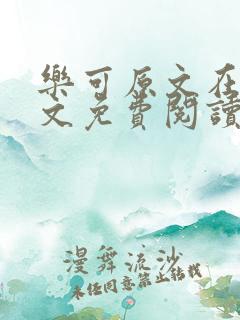 樂可原文在
文免費閱讀
漫舞流沙
未经同意禁止转载